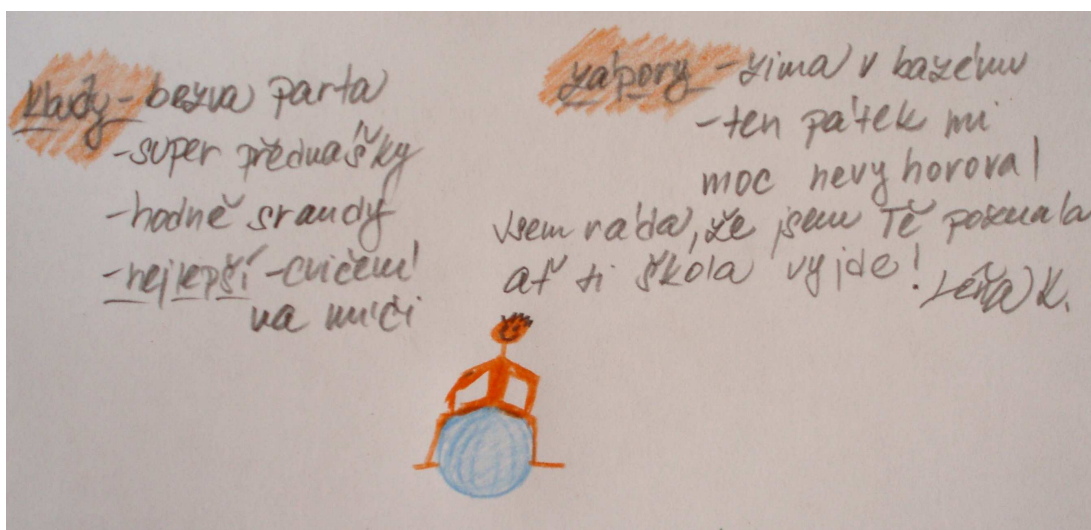 klady - bezva parta
- super přednášky
- hodně srandy
- nejlepší - cvičení
na míči
zápory - zima v bazénu
- ten pátek mi
moc nevyhoroval
Jsem ráda, že jsem Tě poznala
ať ti škola vyjde! Léňa K.